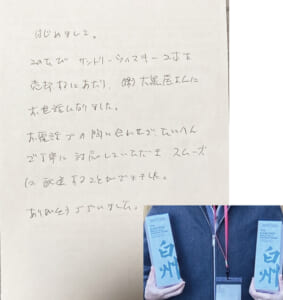 はじめまして。
このたび サントリーウィスキー 2本を
売却するにあたり、(株)大黒屋さんに
お世話になりました。
お電話での問い合わせで、たいへん
ご丁寧に対応していただき スムーズ
に 配送することができました。
ありがとうございました。
白州
白州